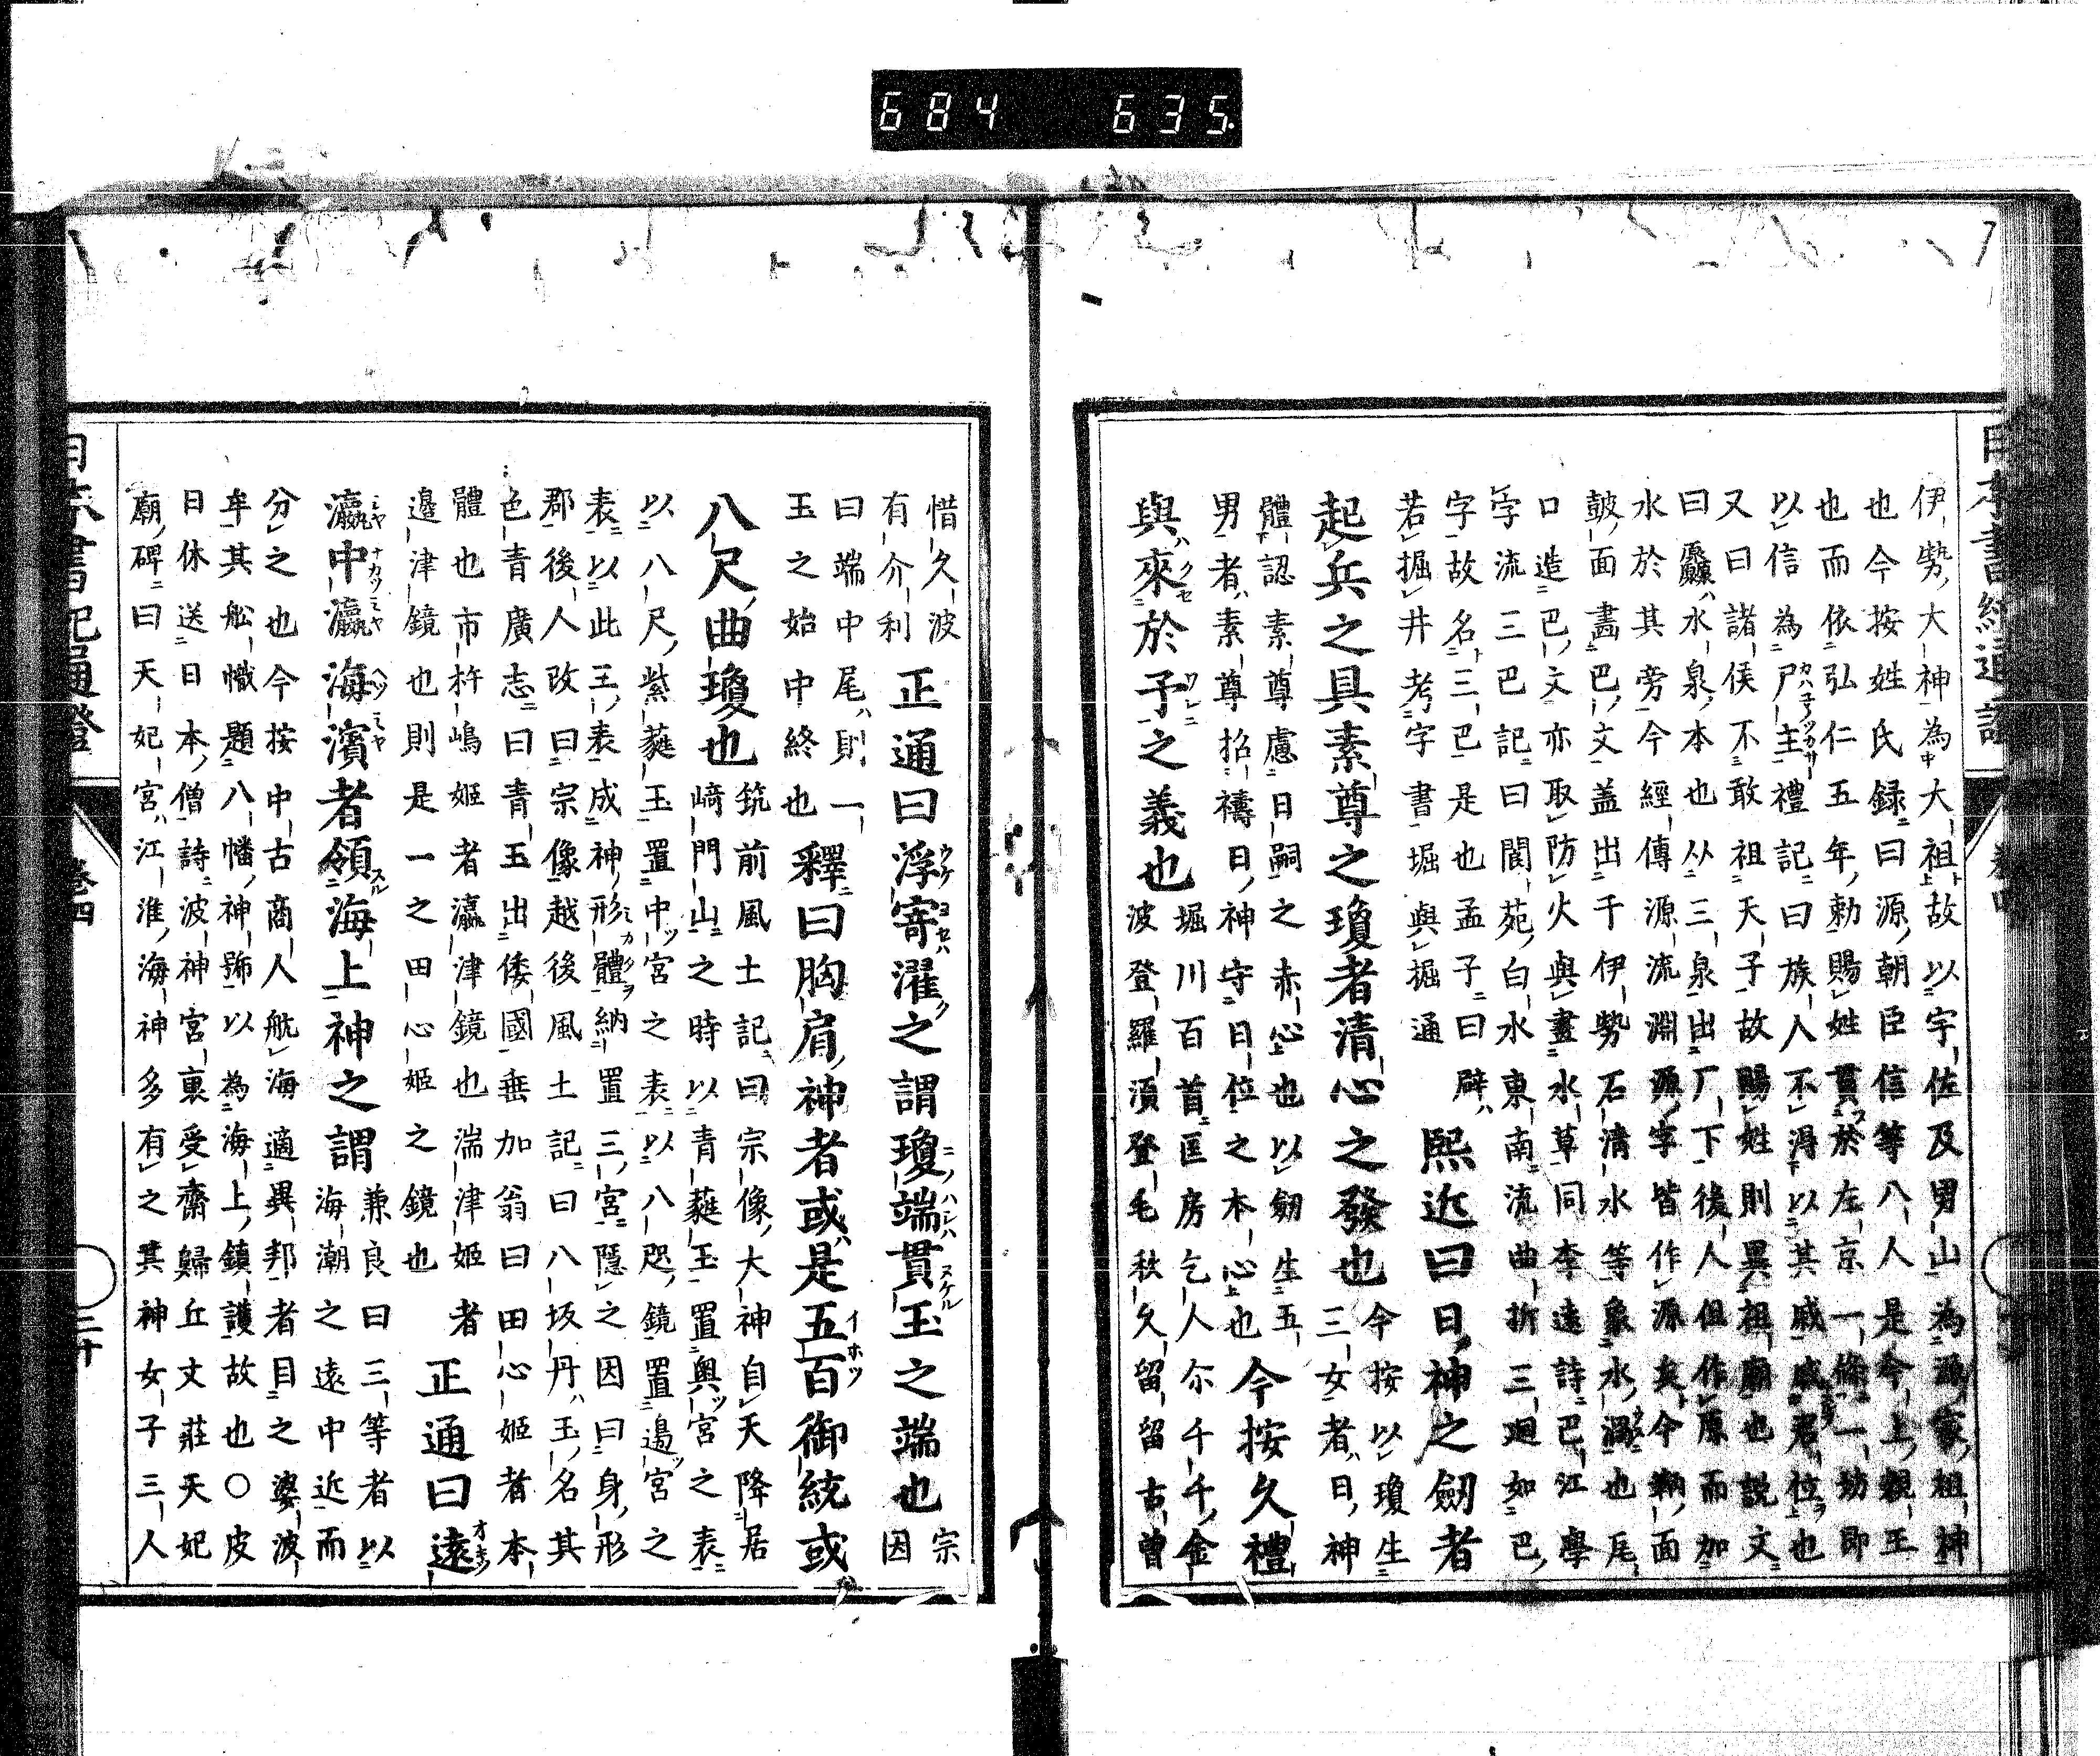 684 635
伊勢大神為大祖故以宇佐及男山為源家祖神
也今按姓氏録曰源朝臣信等八人是今上親王
也而依弘仁五年勅賜姓貫於左京一條一坊即
以信為尸主禮記曰族人不得以其戚戚君位也
又曰諸侯不敢祖天子故賜姓則異祖廟也説文
曰厵水泉本也从三泉出厂下後人但作原而加
水於其旁今經傳源流淵源字皆作源矣今鞆面
皷面畵巴文盖出于伊勢石清水等象水渦也尾
口造巴文亦取防火與畫水草同李遠詩巴江學
字流三巴記曰閬苑白水東南流曲折三廻如巴
字故名三巴是也孟子曰辟
若掘井考字書堀與掘通
熙近曰日神之劔者
起兵之具素尊之瓊者清心之發也
今按以瓊生
三女者日神
體認素尊慮日嗣之赤心也以劔生五
男者素尊招禱日神守日位之本心也
今按久禮
與來於予之義也
堀川百首匡房乞人尓千千金
波登羅湏登毛秋久留留古曽
惜久波
有介利
正通曰浮寄濯之謂瓊端貫玉之端也
宗
因
曰端中尾則一
玉之始中終也
釋曰胸肩神者或是五百御統或
八尺曲瓊也
筑前風土記曰宗像大神自天降居
﨑門山之時以青蕤玉置奥宮之表
以八尺紫蕤玉置中宮之表以八咫鏡置邉宮之
表以此三表成神形體納置三宮隱之因曰身形
郡後人改曰宗像越後風土記曰八坂丹玉名其
色青廣志曰青玉出倭國垂加翁曰田心姫者本
體也市杵嶋姫者瀛津鏡也湍津姫者
邊津鏡也則是一之田心姫之鏡也
正通曰遠
瀛中瀛海濱者領海上神之謂
兼良曰三等者以
海潮之遠中近而
分之也今按中古商人航海適異邦者目之婆波
牟其舩幟題八幡神號以為海上鎮護故也○皮
日休送日本僧詩波神宮裏受齋歸丘文莊天妃
廟碑曰天妃宮江淮海神多有之其神女子三人
日本書紀通證
卷四
二十